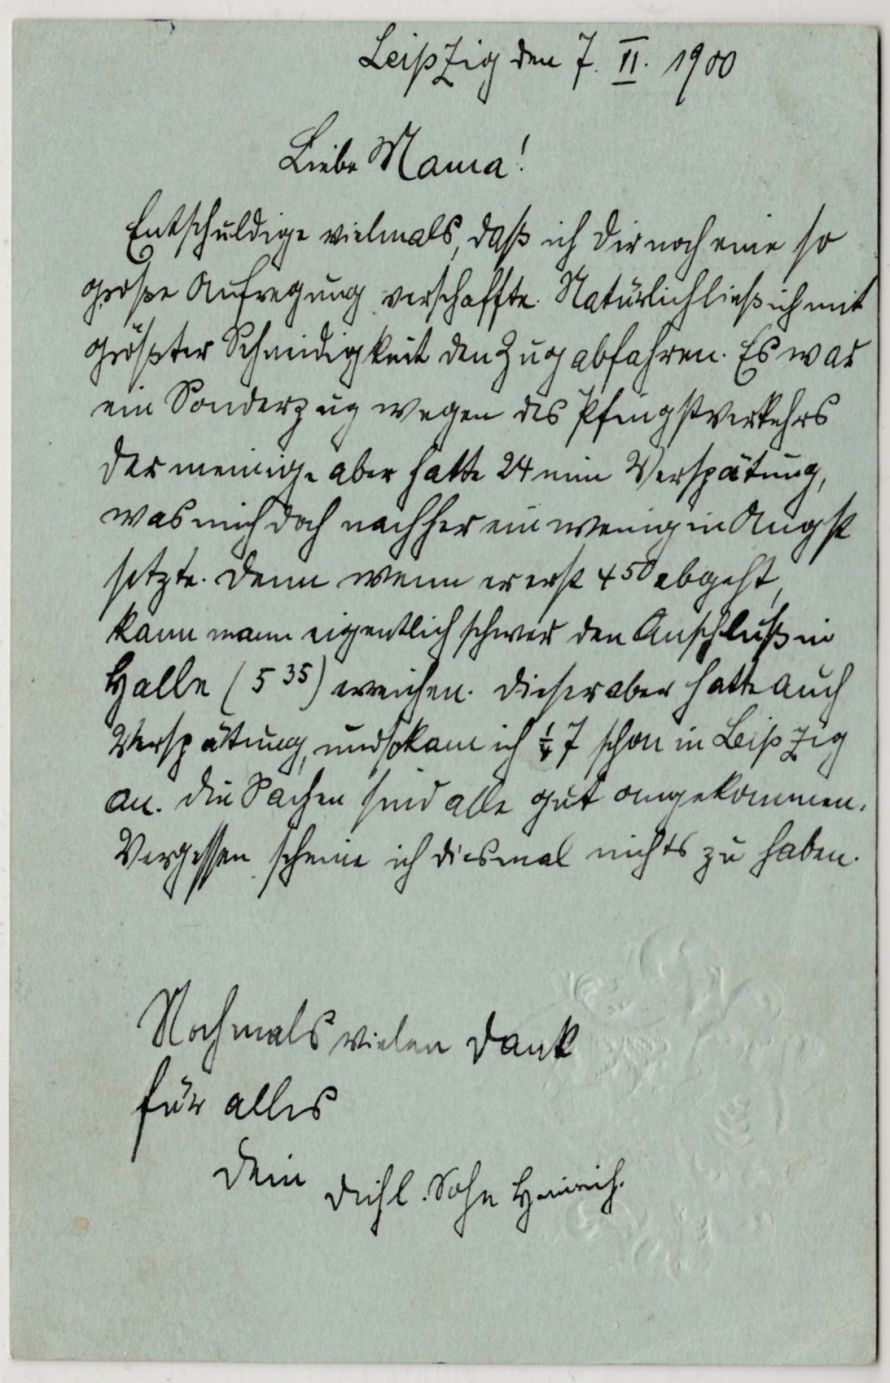 Leipzig den 7. II. 1900
Liebe Mama!
Entschuldige vielmals, daß ich Dir noch eine so
große Aufregung verschaffte. Natürlich ließ ich mit
größter Schneidigkeit den Zug abfahren. Es war
ein Sonderzug wegen des Pfingstverkehrs
der meinige aber hatte 24 min Verspätung,
was mich doch nachher ein wenig in Angst
setzte. Denn wenn er erst 4 50 abgeht,
kann mann eigentlich schwer den Anschluß in
Halle (5 35) erreichen. Dieser aber hatte auch
Verspätung, und so kam ich 1/4 7 schon in Leipzig
an. Die Sachen sind alle gut angekommen.
Vergessen scheine ich diesmal nichts zu haben.
Nochmals vielen Dank
für alles
Dein
Sohn Heinrich.